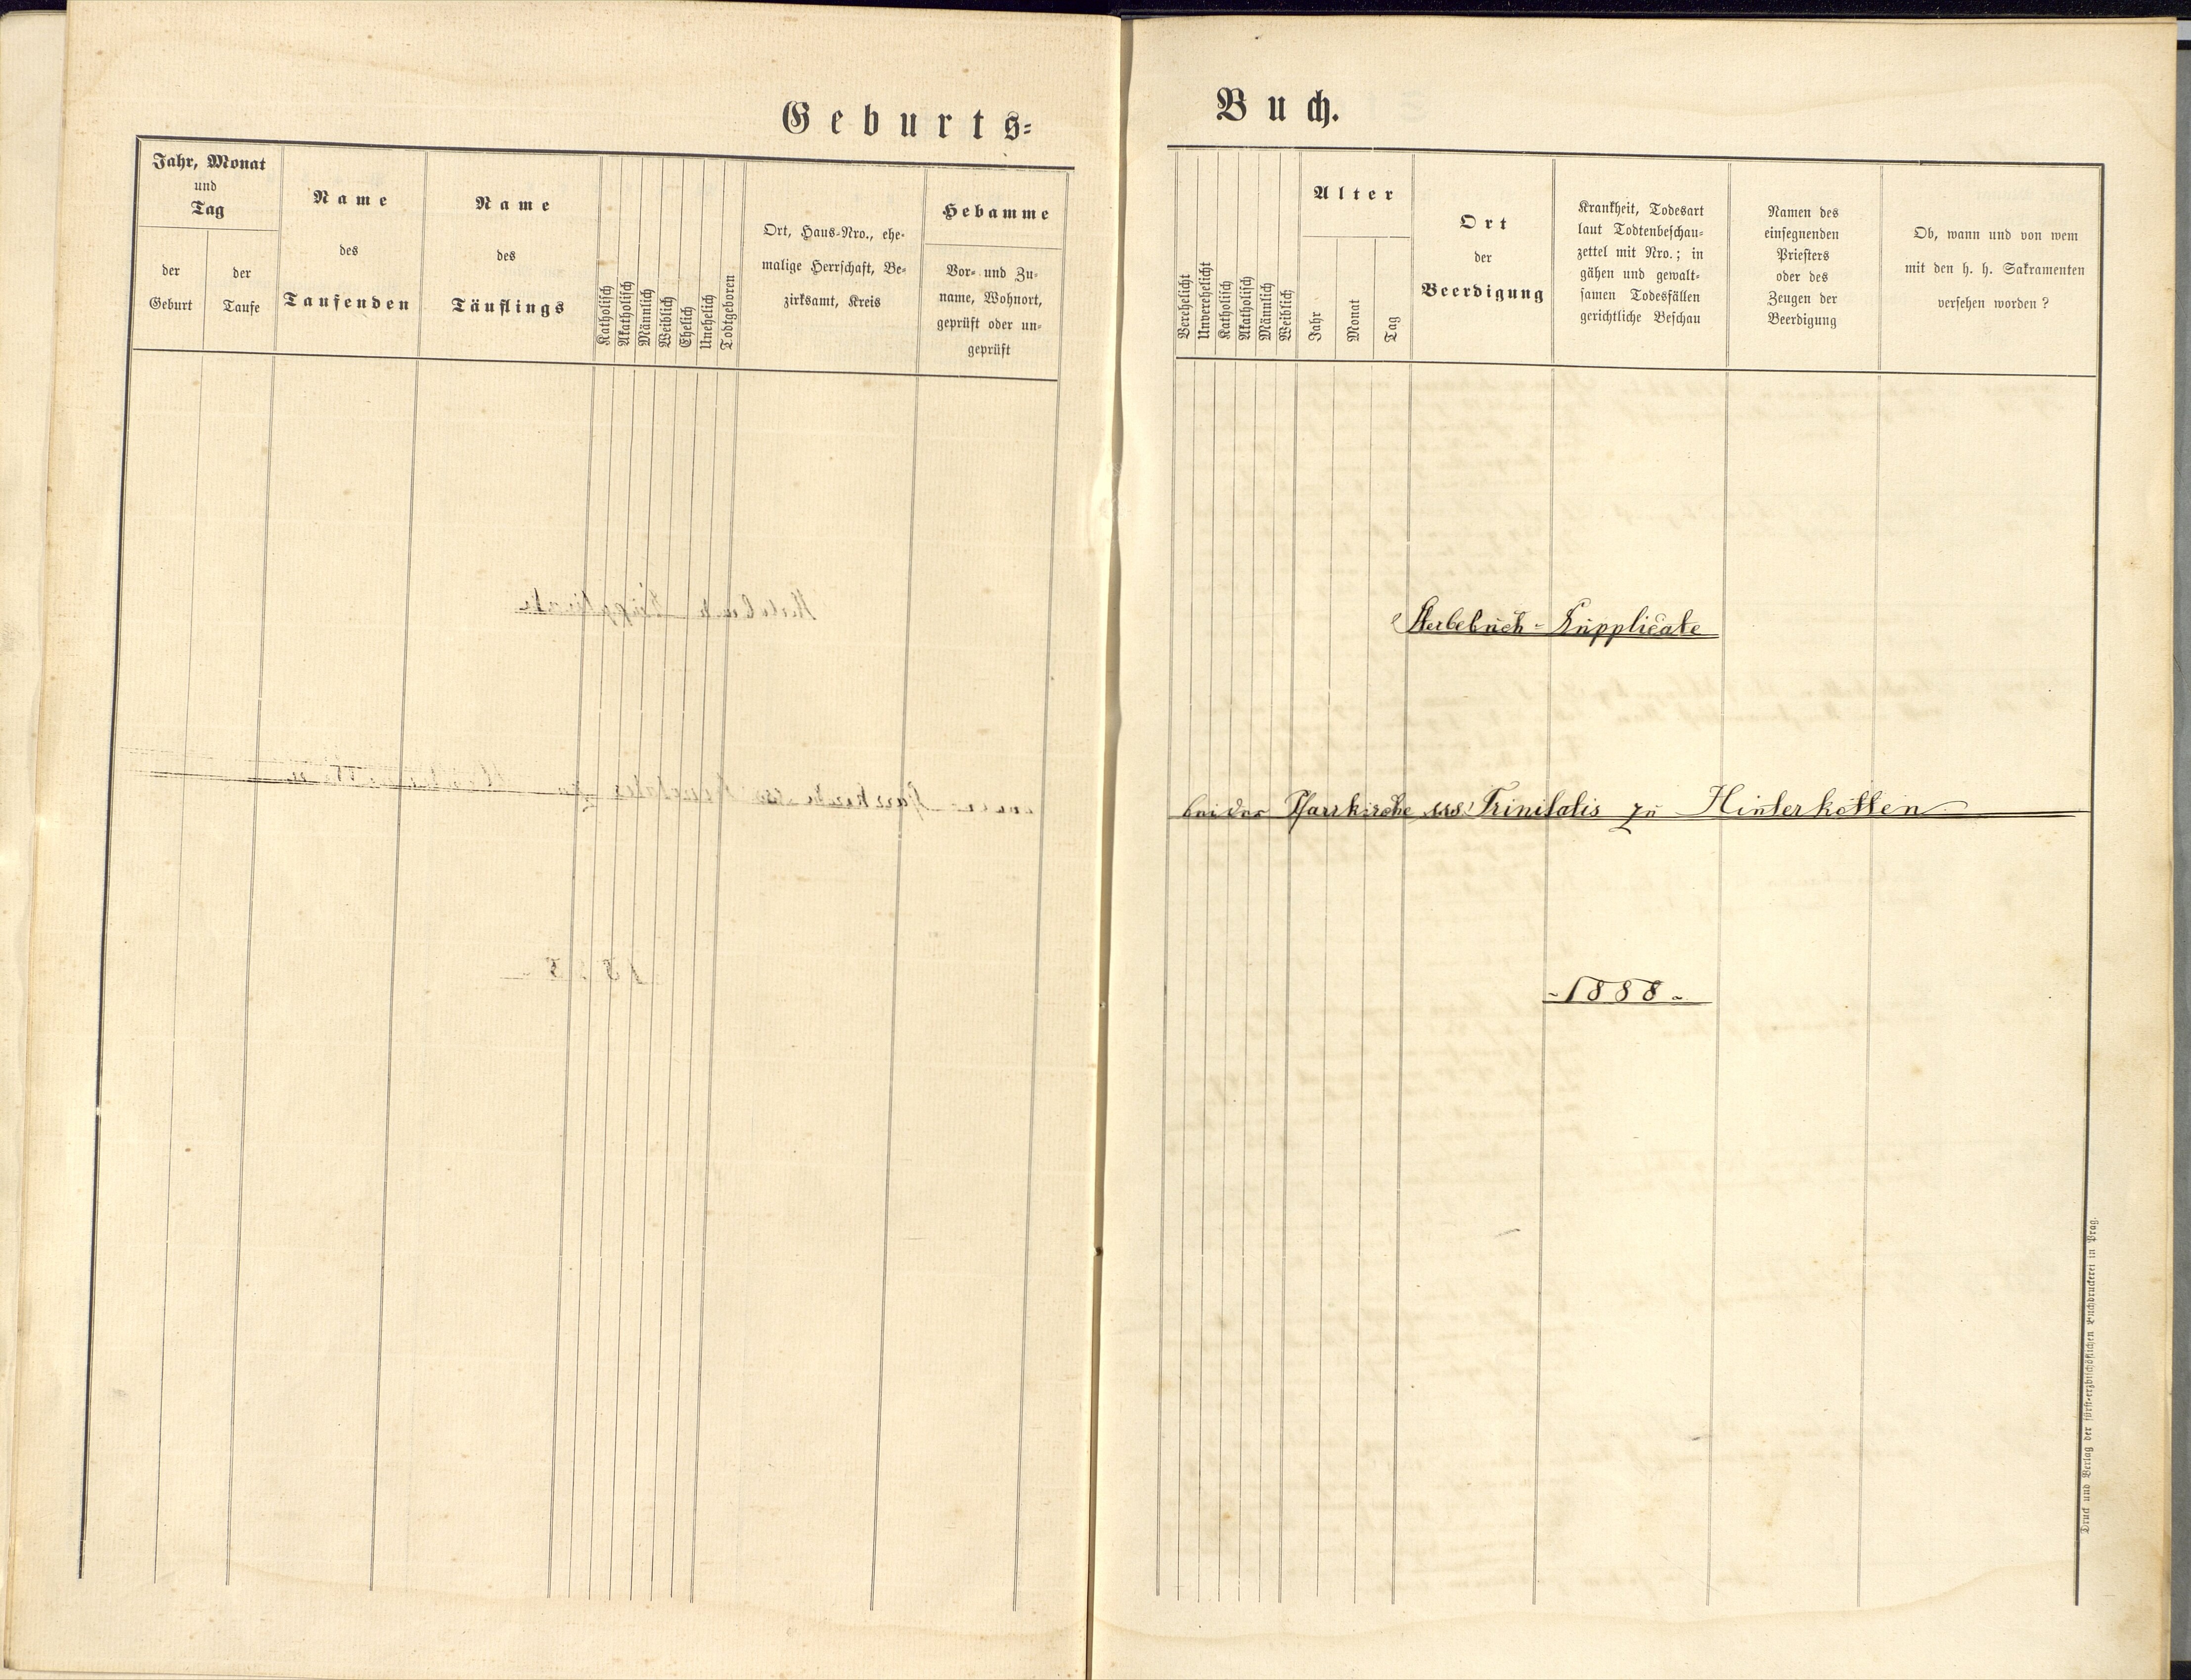 Geburts-
Jahr, Monat
und
Tag
der
Geburt
der
Taufe
Name
des
Taufenden
Name
des
Täuflings
Katholisch
Akatholisch
Männlich
Weiblich
Ehelich
Unehelich
Todtgeboren
Ort, Haus-Nro., ehe-
malige Herrschaft, Be-
zirksamt, Kreis
Hebamme
Vor- und Zu-
name, Wohnort,
geprüft oder un-
geprüft
Buch.
Verehelicht
Unverehelicht
Katholisch
Akatholisch
Männlich
Weiblich
Alter
Jahr
Monat
Tag
Ort
der
Beerdigung
Krankheit, Todesart
laut Todtenbeschau-
zettel mit Nro.; in
gähen und gewalt-
samen Todesfällen
gerichtliche Beschau
Namen des
einsegnenden
Priesters
oder des
Zeugen der
Beerdigung
Ob, wann und von wem
mit den h. h. Sakramenten
versehen worden?
Sterbebuch-Dupplicate
bei der Pfarrkirche sss. Trinitatis zu Hinterkotten
- 1888 -
Druck und Verlag der fürst-erzbischöflichen Buchdruckerei in Prag.